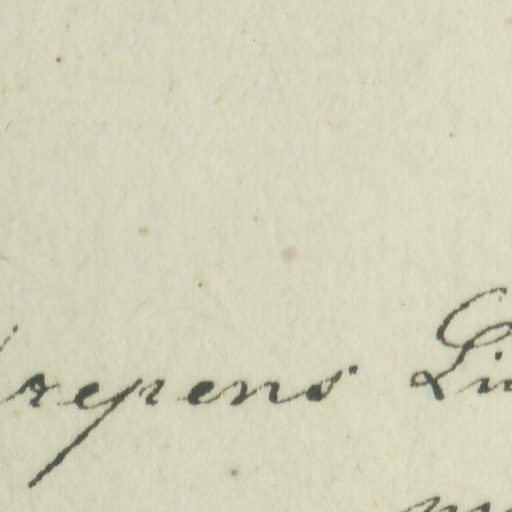 repens Lin